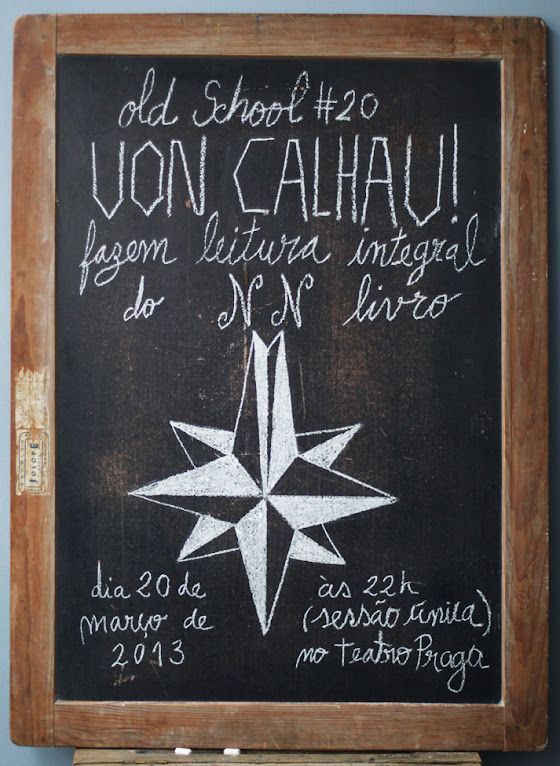 old School #20
VON CALHAU!
fazem leitura integral
do NN livro
dia 20 de
março de
2013
às 22h
(sessão única)
no teatro Praga